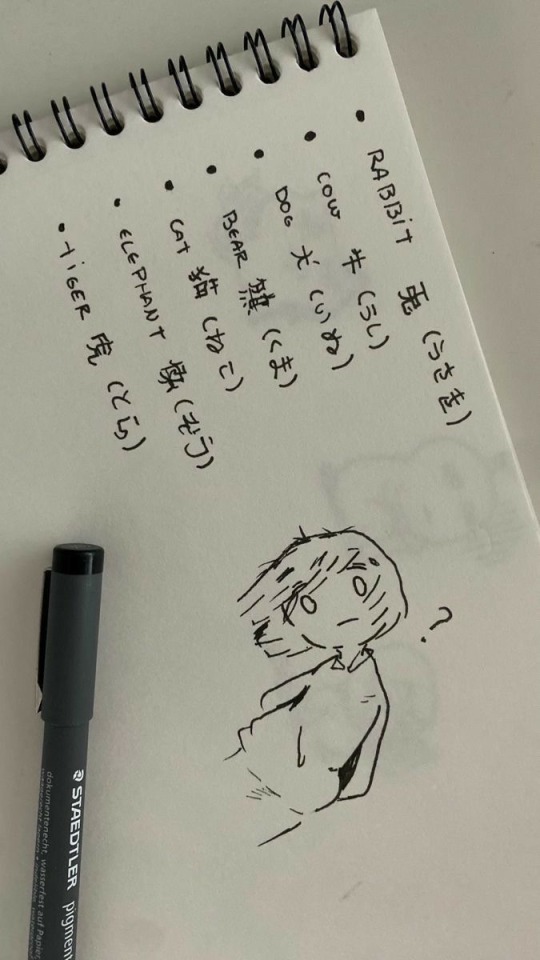 • RABBiT 兎 (うさぎ)
• COW 牛 (うし)
• DOG 犬 (いぬ)
• BEAR 熊 (くま)
• CAT 猫 (ねこ)
• ELEPHANT 象 (ぞう)
• tiGER 虎 (とら)
?
STAEDTLER pigment
dokumentenecht, wasserfest auf Papier